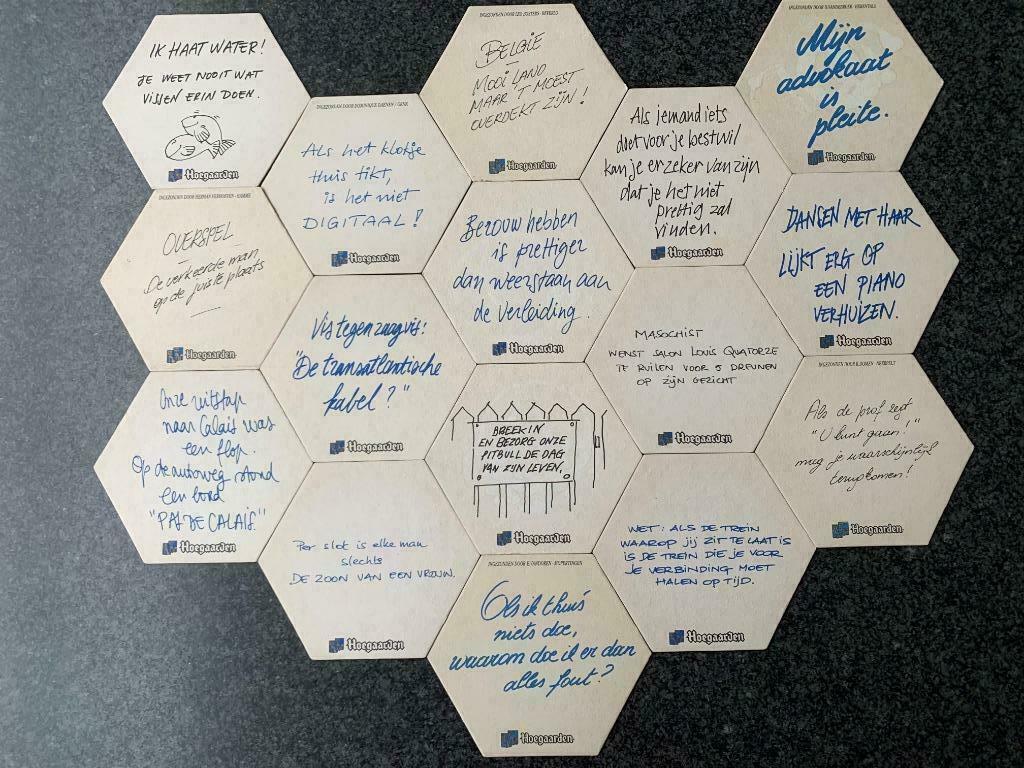 IK HAAT WATER!
JE WEET NOOIT WAT
VISSEN ERIN DOEN.
Hoegaarden
BELGIE
MOOI LAND
MAAR 'T MOEST
OVERDEKT ZIJN!
Hoegaarden
Mijn
advokaat
is
pleite.
Hoegaarden
INGEZONDEN DOOR DOMINIQUE DAENEN / GENK
Als het klokje
thuis tikt,
is het niet
DIGITAAL!
Hoegaarden
Als iemand iets
doet voor je bestwil
kan je er zeker van zijn
dat je het niet
prettig zal
vinden.
Hoegaarden
INGEZONDEN DOOR HERMAN
OVERSPEL
De verkeerde man
op de juiste plaats
Hoegaarden
Berouw hebben
is prettiger
dan weerstaan aan
de verleiding.
Hoegaarden
DANSEN MET HAAR
LIJKT ERG OP
EEN PIANO
VERHUIZEN.
Hoegaarden
Vis tegen zaagvis:
"De transatlantische
kabel?"
Hoegaarden
MASOCHIST
WENST SALON LOUIS QUATORZE
TE RUILEN VOOR 5 DREUNEN
OP ZIJN GEZICHT
Hoegaarden
Onze uitstap
naar Calais was
een flop.
Op de autoweg stond
een bord
"PAS DE CALAIS."
Hoegaarden
BREEK IN
EN BEZORG ONZE
PITBULL DE DAG
VAN ZIJN LEVEN.
Hoegaarden
INGEZONDEN DOOR
Als de prof zegt
"U kunt gaan!"
mag je waarschijnlijk
terugkomen!
Hoegaarden
Per slot is elke man
slechts
DE ZOON VAN EEN VROUW.
Hoegaarden
WET: ALS DE TREIN
WAAROP JIJ ZIT TE LAAT IS
IS DE TREIN DIE JE VOOR
JE VERBINDING MOET
HALEN OP TIJD.
Hoegaarden
INGEZONDEN DOOR
Als ik thuis
niets doe,
waarom doe ik er dan
alles fout?
Hoegaarden